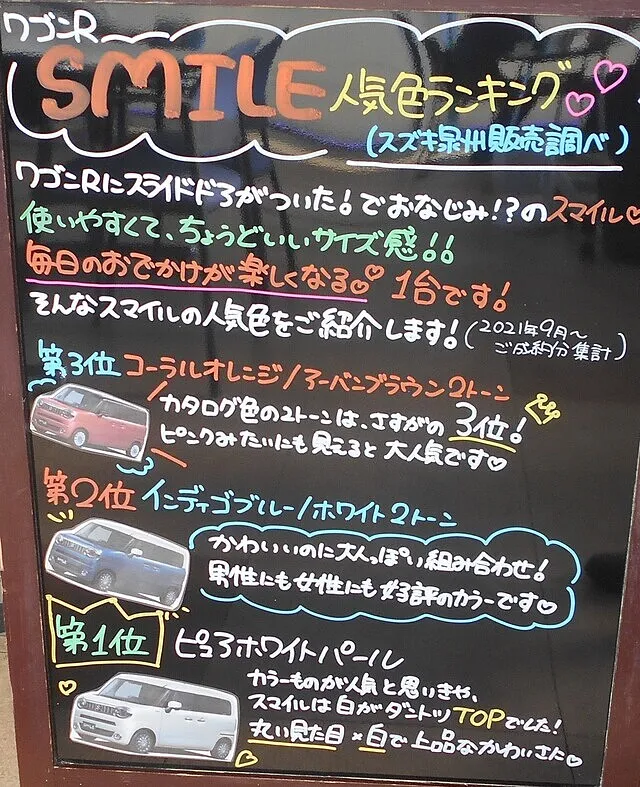 ワゴンR
SMILE 人気色ランキング♡♡
(スズキ泉州販売調べ)
ワゴンRにスライドドアがついた!でおなじみ!?のスマイル♡
使いやすくて、ちょうどいいサイズ感!!
毎日のおでかけが楽しくなる♡♡ 1台です!
そんなスマイルの人気色をご紹介します!(2021年9月〜
ご成約分集計)
第3位 コーラルオレンジ/アーバンブラウン2トーン
カタログ色の2トーンは、さすがの3位!
ピンクみたいにも見えると大人気です♡
第2位 インディゴブルー/ホワイト2トーン
かわいいのに大人っぽい組み合わせ!
男性にも女性にも好評のカラーです♡
第1位 ピュアホワイトパール
カラーものが人気と思いきや、
スマイルは白がダントツTOPでした!
丸い見た目×白で上品なかわいさに♡